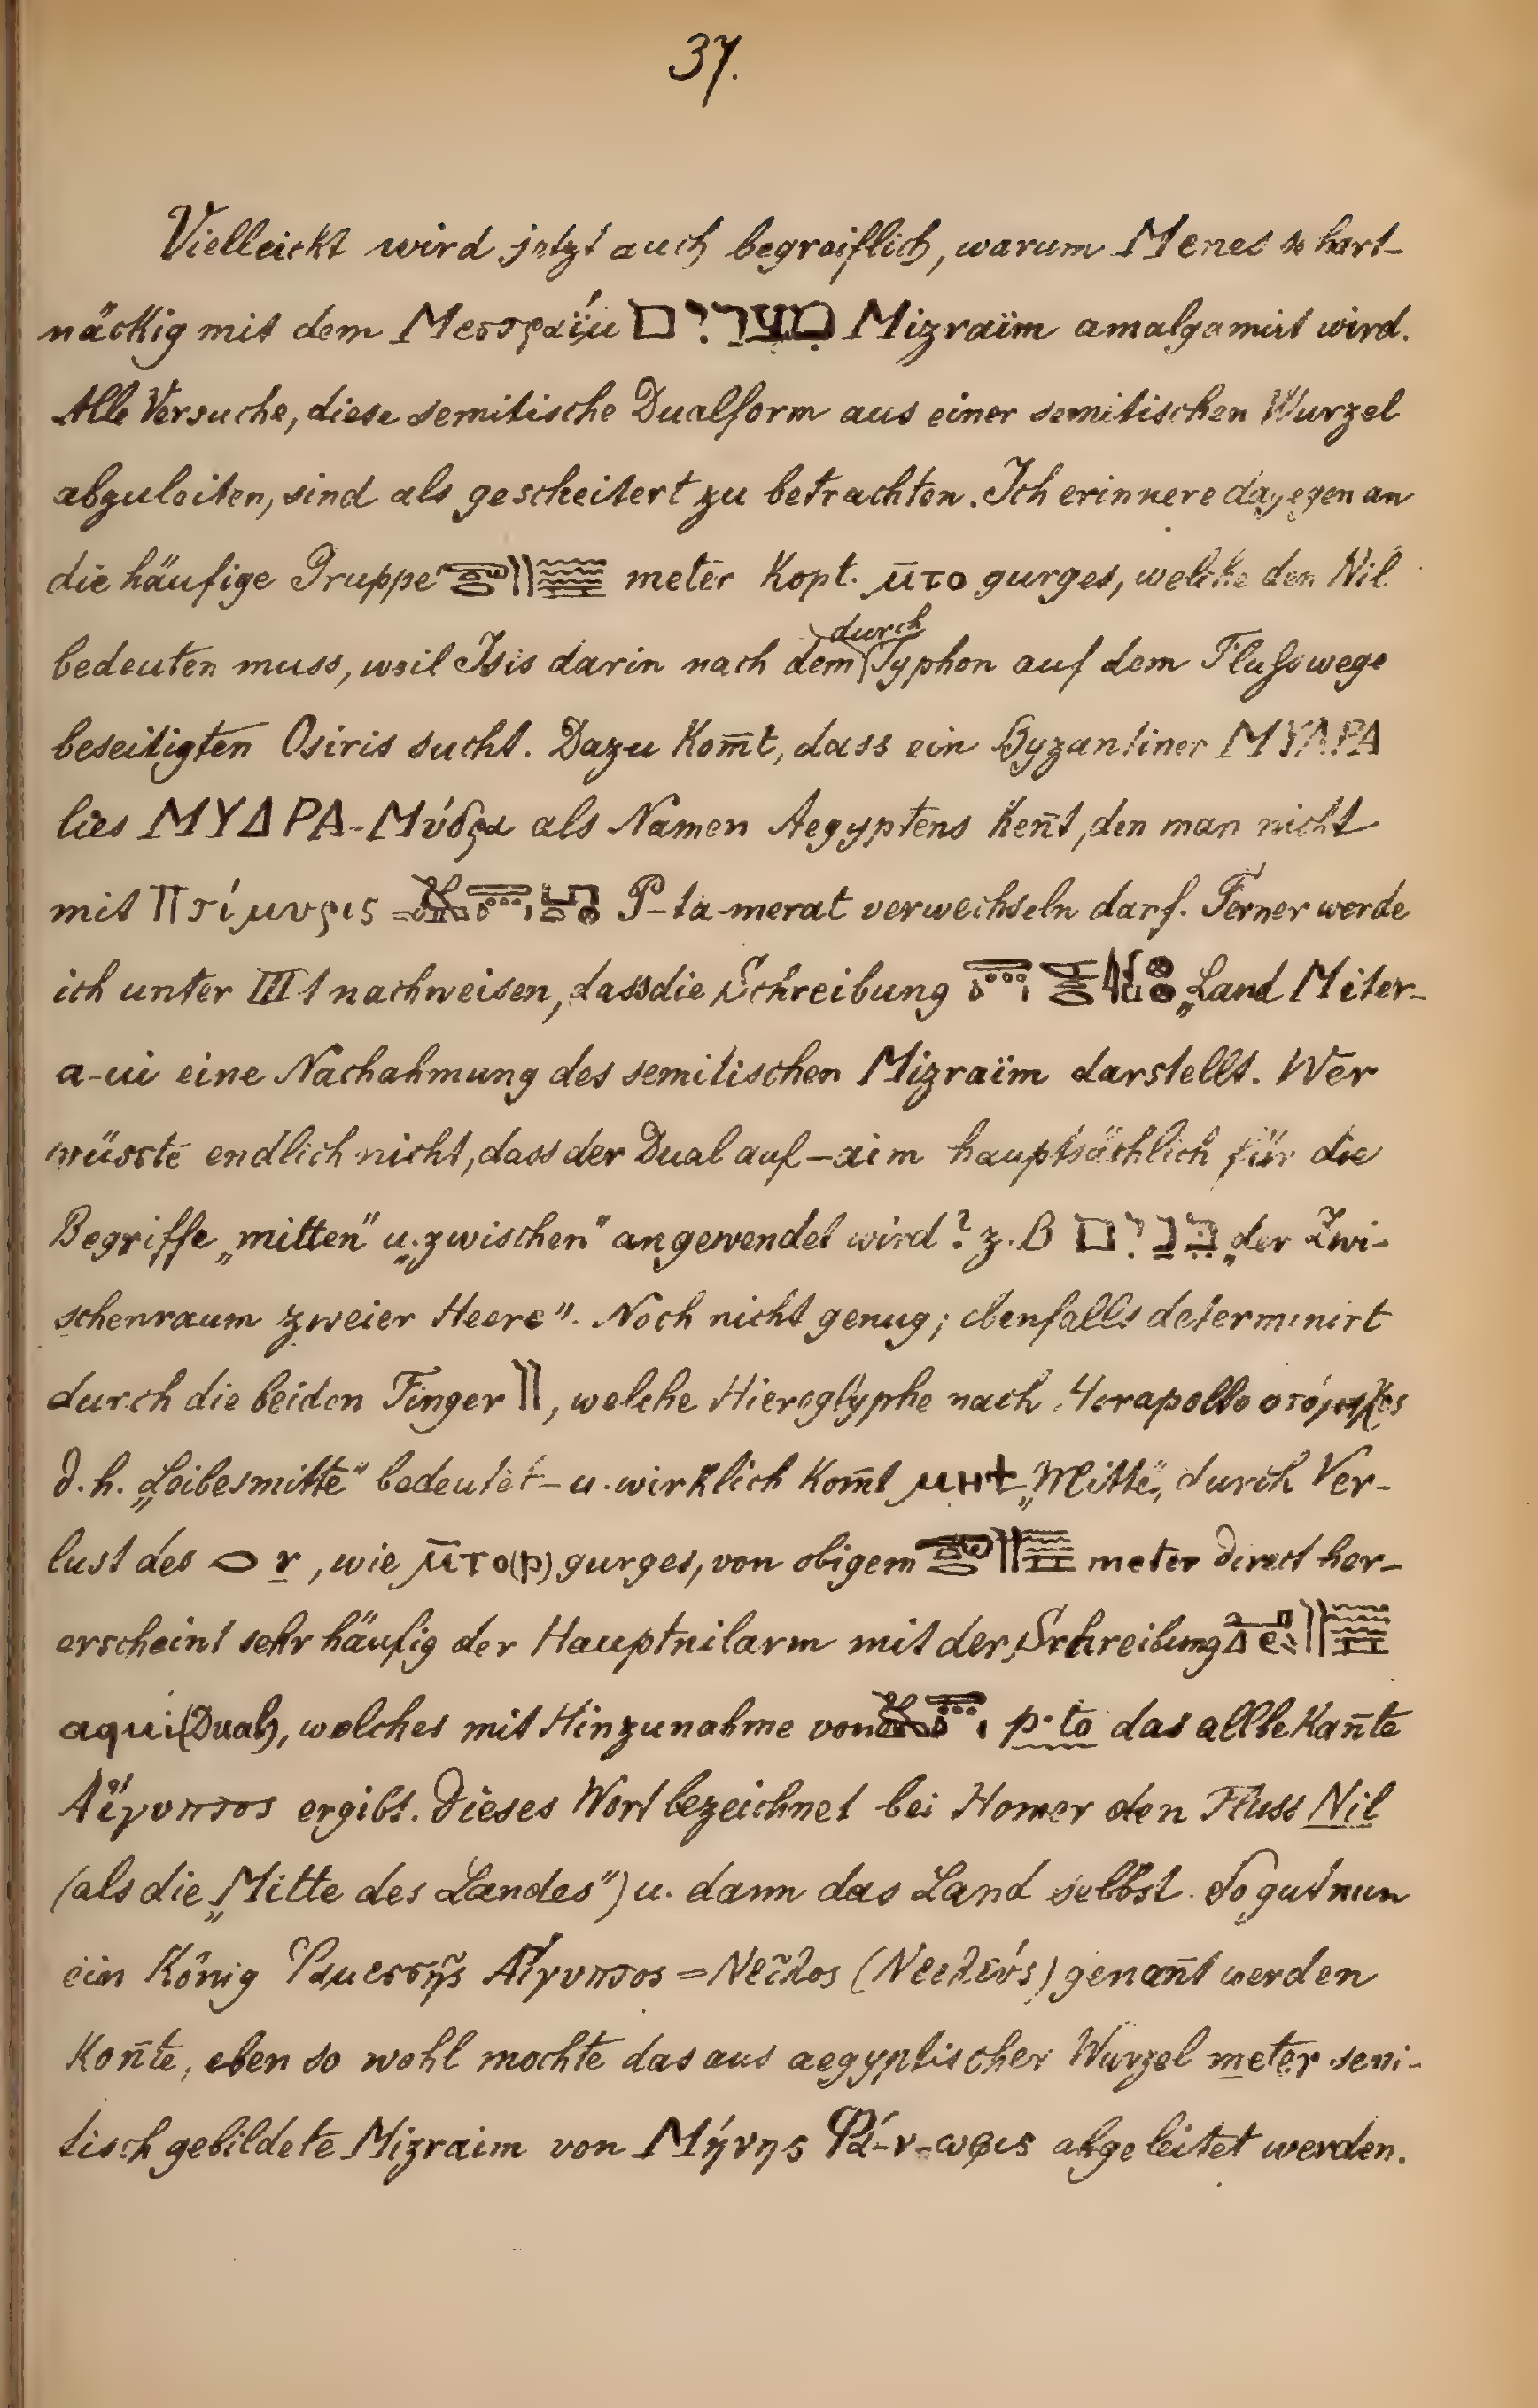 37.
Vielleicht wird jetzt auch begreiflich, warum Menes so hart-
näckig mit dem Μεσσραΐμ מִצְרַיִם Mizraïm amalgamirt wird.
Alle Versuche, diese semitische Dualform aus einer semitischen Wurzel
abzuleiten, sind als gescheitert zu betrachten. Ich erinnere dagegen an
die häufige Gruppe meter Kopt. μ̅το gurges, welche den Nil
bedeuten muss, weil Isis darin nach dem durch Typhon auf dem Flußwege
beseitigten Osiris sucht. Dazu kom̅t, dass ein Byzantiner ΜΥΛΡΑ
lies ΜΥΔΡΑ-Μύδρα als Namen Aegyptens ken̅t, den man nicht
mit Πτίμυρις P-ta-merat verwechseln darf. Ferner werde
ich unter III 1 nachweisen, dass die Schreibung „Land Miter-
a-ui eine Nachahmung des semitischen Mizraïm darstellt. Wer
wüsste endlich nicht, dass der Dual auf -aim hauptsächlich für die
Begriffe „mitten" u. „zwischen" angewendet wird? z. B בֵּנַיִם „der Zwi-
schenraum zweier Heere". Noch nicht genug; ebenfalls determinirt
durch die beiden Finger, welche Hieroglyphe nach Horapollo
d. h. „Leibesmitte" bedeutet - u. wirklich kom̅t ⲙⲏϯ „Mitte„ durch Ver-
lust des r, wie μ̅το(ρ) gurges, von obigem meter direct her-
erscheint sehr häufig der Hauptnilarm mit der Schreibung
aqui (Dual), welches mit Hinzunahme von p-to das allbekan̅te
Αἴγυπτος ergibt. Dieses Wort bezeichnet bei Homer den Fluss Nil
(als die „Mitte des Landes") u. dann das Land selbst. So gut nun
ein König Ῥαμεσσῆς Αἴγυπτος = Νεῖλος (Νειλεύς) genan̅t werden
kon̅te, eben so wohl mochte das aus aegyptischer Wurzel meter semi-
tisch gebildete Mizraim von Μήνης Φά-ν-ωφις abgeleitet werden.